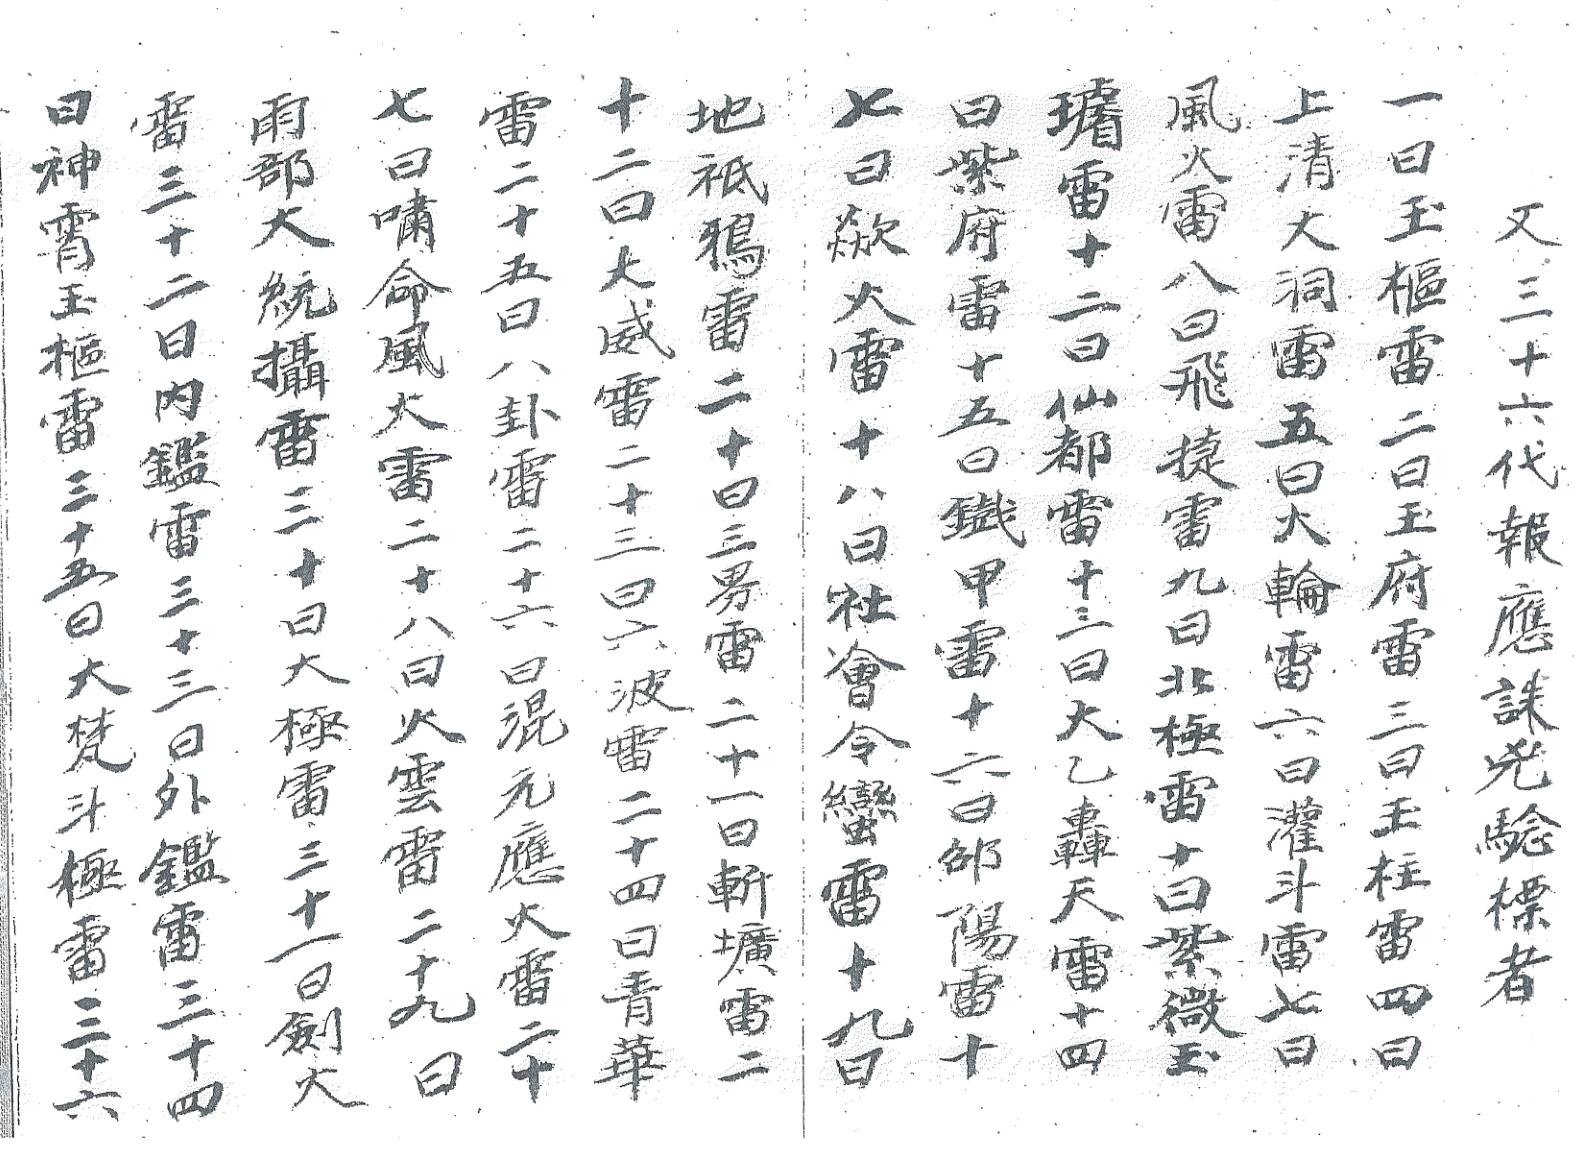 又三十六代報應誅兇驗標者
一曰玉樞雷二曰玉府雷三曰玉柱雷四曰
上清大洞雷五曰火輪雷六曰灌斗雷七曰
風火雷八曰飛捷雷九曰北極雷十曰紫微玉
璿雷十二曰仙都雷十三曰大乙轟天雷十四
曰紫府雷十五曰鐵甲雷十六曰邵陽雷十
七曰歘火雷十八曰社會令蠻雷十九曰
地祇鴉雷二十曰三界雷二十一曰斬壙雷二
十二曰大威雷二十三曰六波雷二十四曰青華
雷二十五曰八卦雷二十六曰混元應火雷二十
七曰嘯命風大雷二十八曰火雲雷二十九曰
雨部大統攝雷三十曰大極雷三十一曰劍火
雷三十二曰內鑑雷三十三曰外鑑雷三十四
曰神霄玉樞雷三十五曰大梵斗極雷三十六